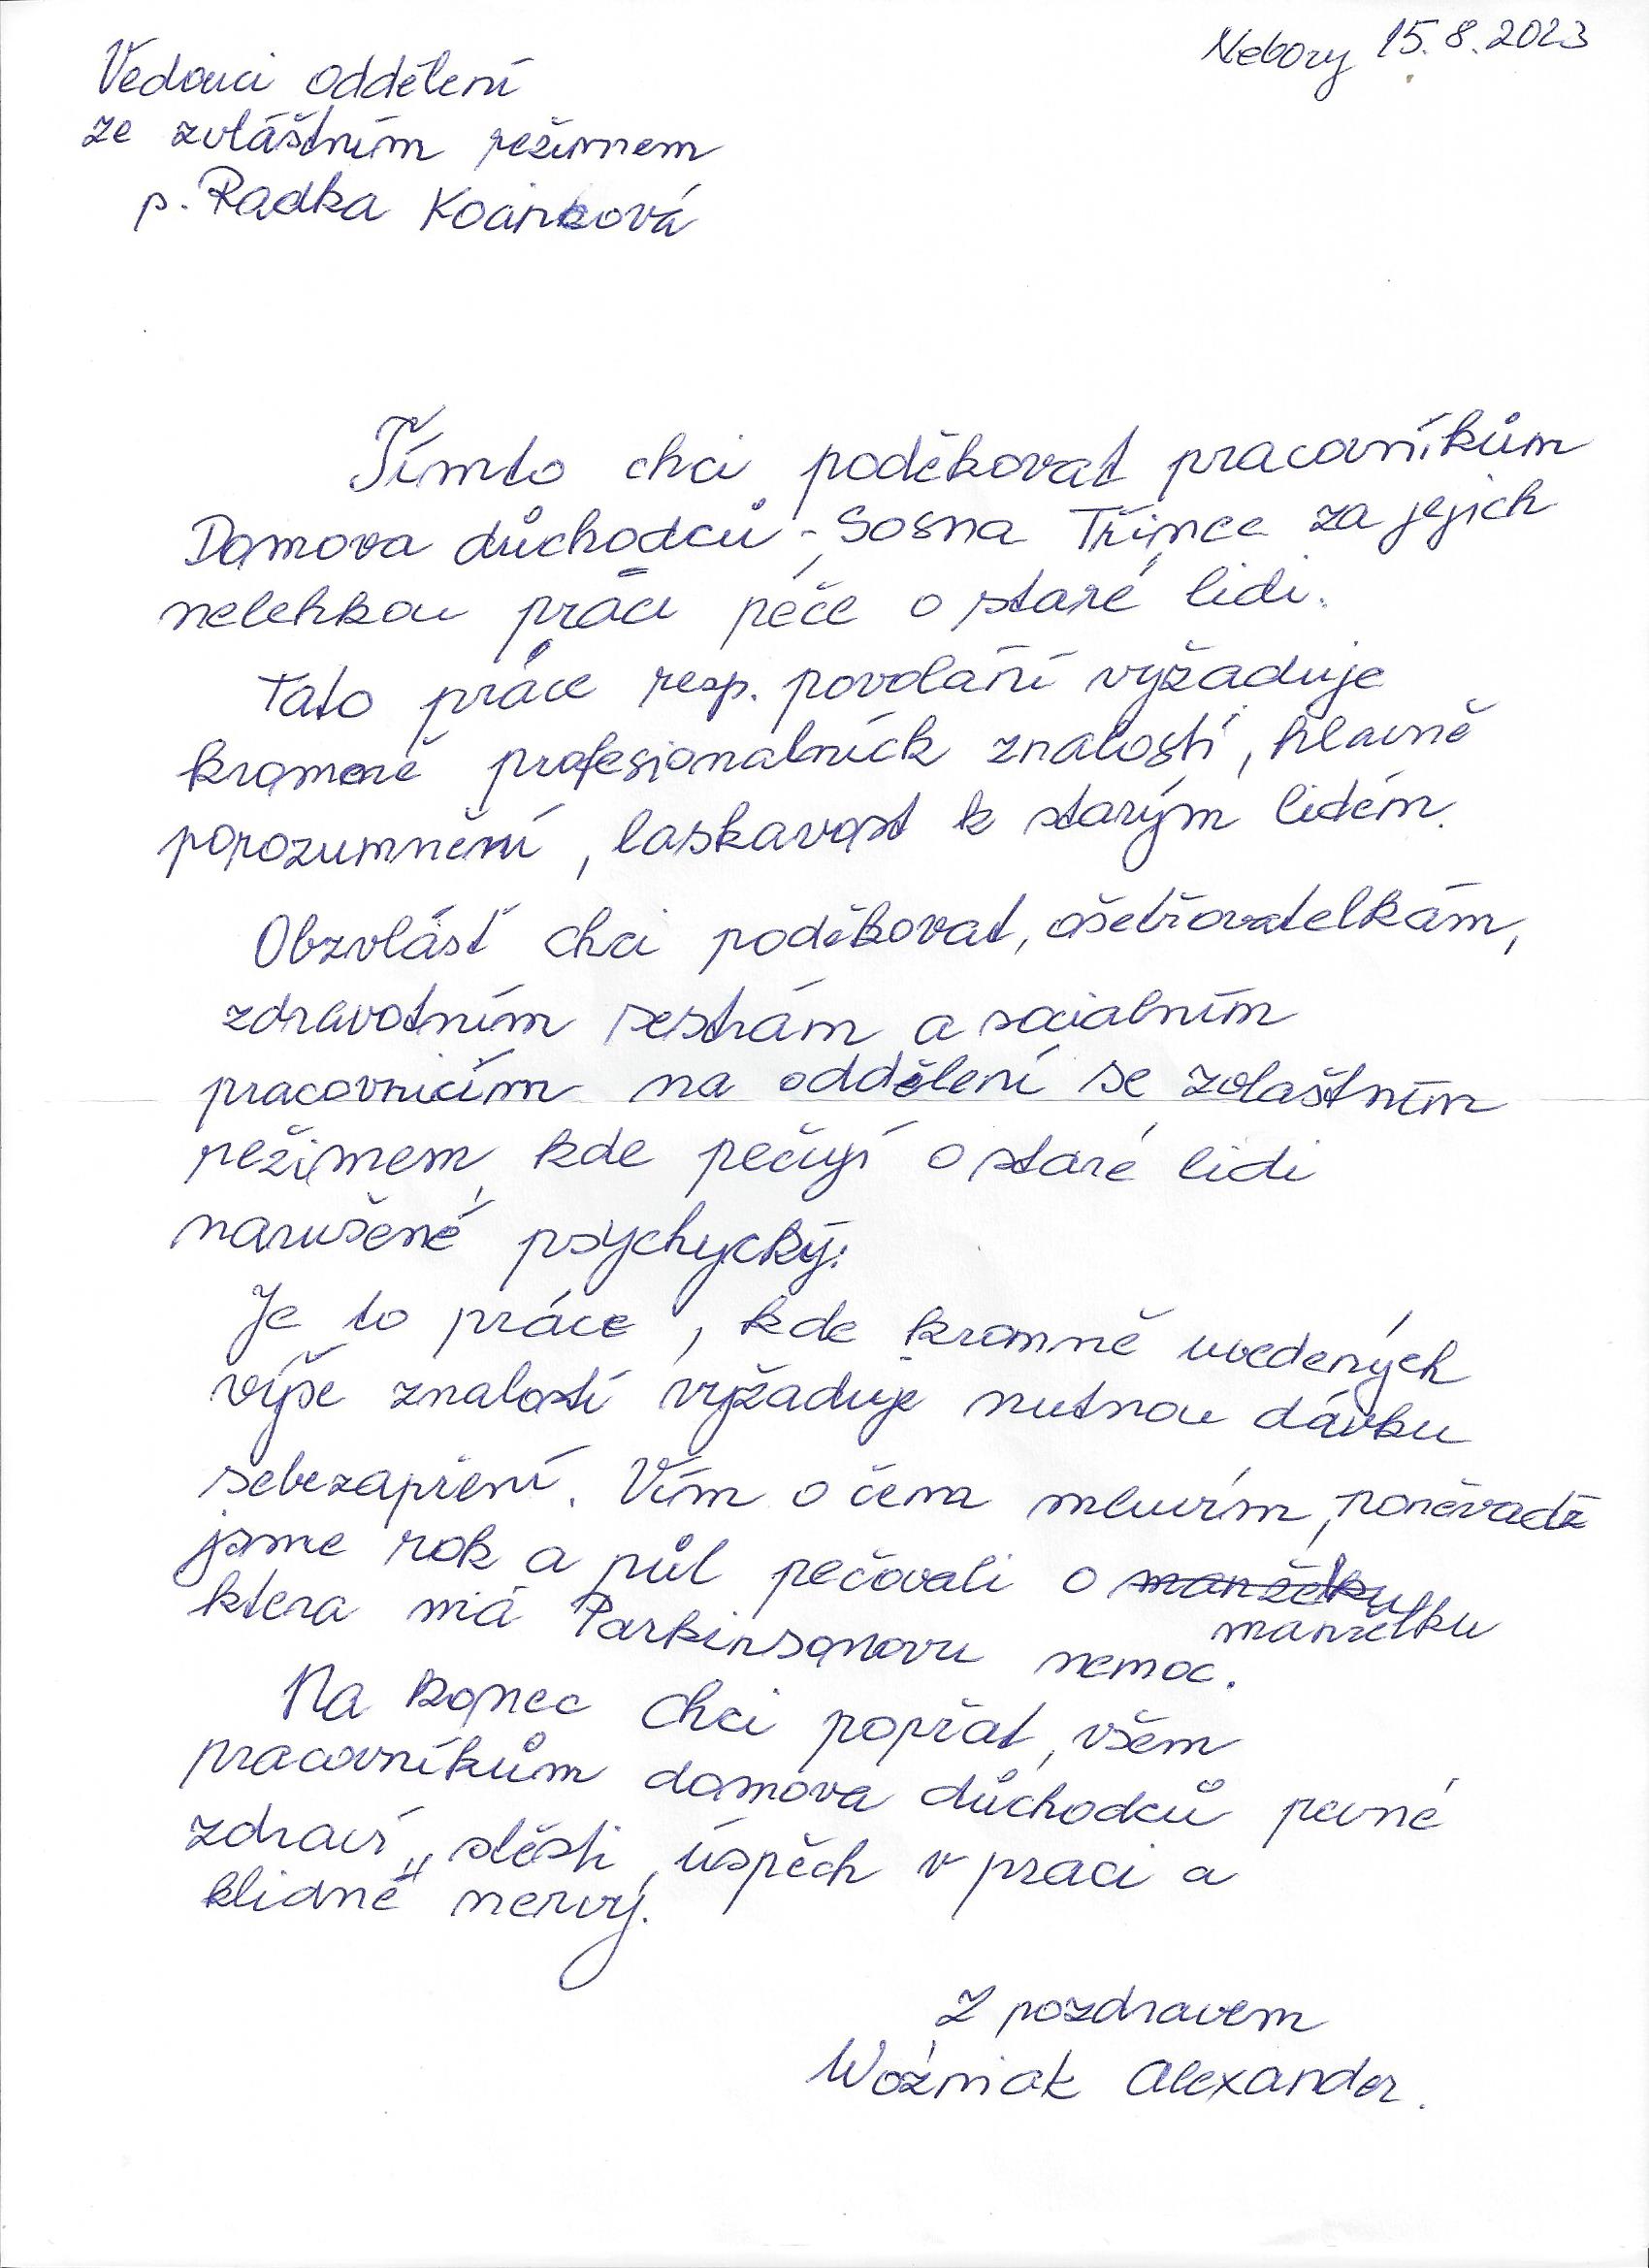 Nebory 15.8.2023
Vedoucí oddělení
ze zvláštním režimem
p. Radka
Tímto chci poděkovat pracovníkům
Domova důchodců - Sosna Třinec za jejich
nelehkou práci péče o staré lidi.
Tato práce resp. povolání vyžaduje
kromně profesionalních znalostí, hlavně
porozumnění, laskavost k starým lidém.
Obzvlášť chci poděkovat, ošetřovatelkám,
zdravotním sestrám a socialním
pracovnicím na oddělení se zvlaštním
režimem, kde pečují o staré lidi
narušené psychycký.
Je to práce, kde kromně uvedených
výše znalostí vyžaduje nutnou dávku
sebezapření. Vím o čem mluvím, poněvadž
jsme rok a půl pečovali o manželku
manželku
ktera má Parkinsonovu nemoc.
Na konec chci popřat, všem
pracovníkům domova důchodců pevné
zdraví, stěsti, úspěch v praci a
klidné nervy.
Z pozdravem
Woźniak Alexander.